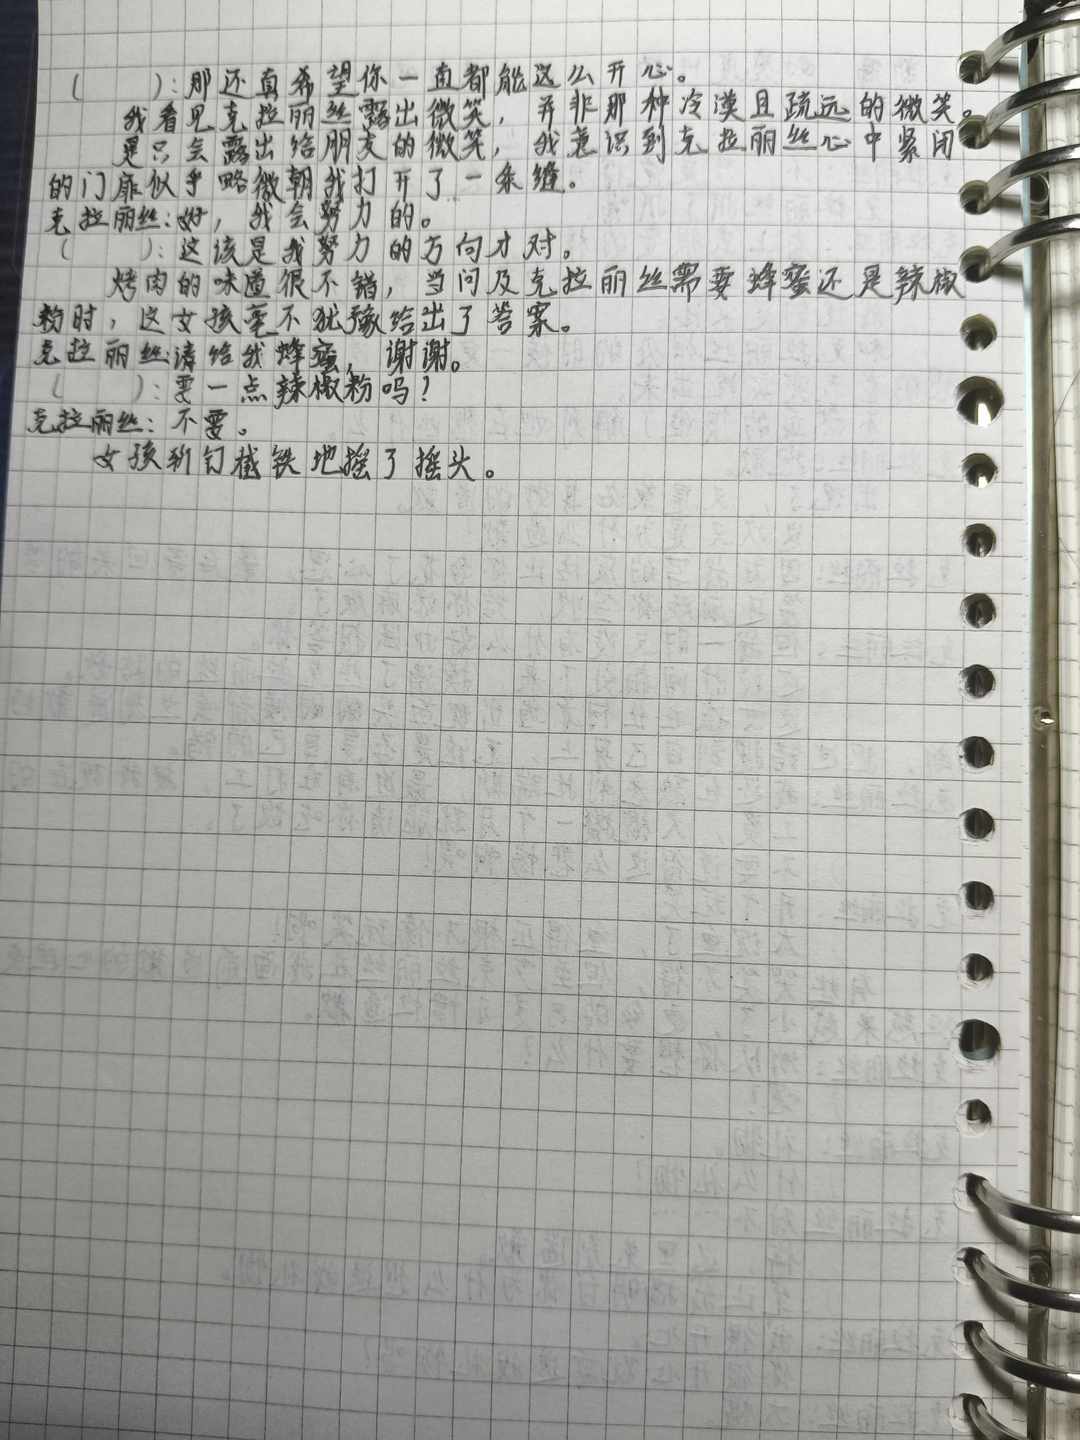 (      )：那还真希望你一直都能这么开心。
我看见克拉丽丝露出微笑，并非那种冷漠且疏远的微笑。
是只会露出给朋友的微笑，我意识到克拉丽丝心中紧闭
的门扉似乎略微朝我打开了一条缝。
克拉丽丝：好，我会努力的。
(      )：这该是我努力的方向才对。
烤肉的味道很不错，当问及克拉丽丝需要蜂蜜还是辣椒
粉时，这女孩毫不犹豫给出了答案。
克拉丽丝：请给我蜂蜜，谢谢。
(      )：要一点辣椒粉吗？
克拉丽丝：不要。
女孩斩钉截铁地摇了摇头。